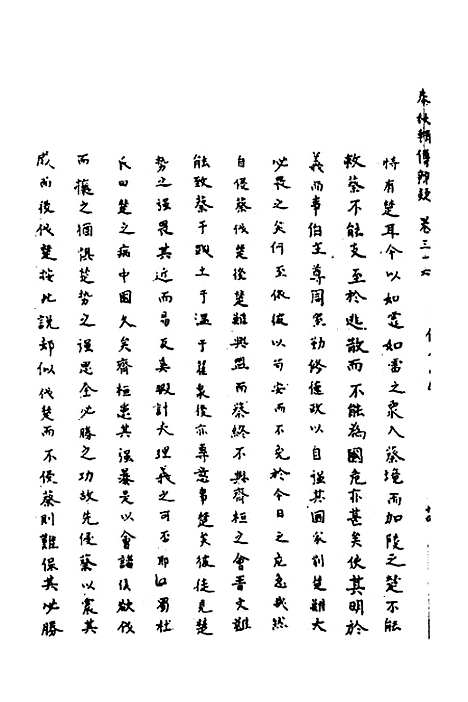 春秋輯傳辨疑 卷三十六
恃有楚耳今以如霆如雷之眾入蔡境而加陵之楚不能
救蔡不能支至於逃散而不能為國危亦甚矣使其明於
義而事伯主尊周室勤修德政以自强其國家則楚雖大
必畏之矣何至依彼以苟安而不免於今日之危急哉然
自侵蔡伐楚後楚雖與盟而蔡終不與齊桓之會晋文雖
能致蔡于踐土于温于翟泉後亦專意事楚矣彼徒見楚
勢之强畏其近而易及真暇計大理義之可否耶囗蜀杜
氏曰楚之病中國久矣齊桓患其强暴是以會諸侯欲伐
而攘之猶惧楚勢之强思全必勝之功故先侵蔡以震其
威而後伐楚按此說却似伐楚而不侵蔡則難保其必勝